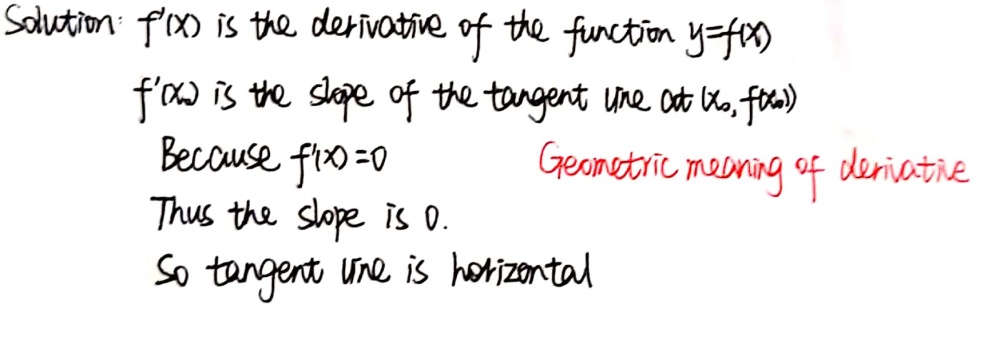 Solution: f'(x) is the derivative of the function y=f(x)
f'(x₀) is the slope of the tangent line at (x₀, f(x₀))
Because f'(x)=0
Geometric meaning of derivative
Thus the slope is 0.
So tangent line is horizontal